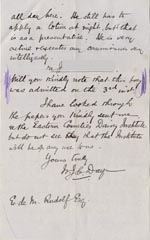 all day here. He still has to
apply a lotion at night, but that
is as a preventative. He is very
active
intelligently.
Will you kindly note that this boy
was admitted on the 3rd inst.
I have looked through
the papers you kindly sent me
re the Eastern Counties Dairy Institute
but do not see that the Institute
will be of any use to us.
Yours truly
E. de M. Rudolf Esq